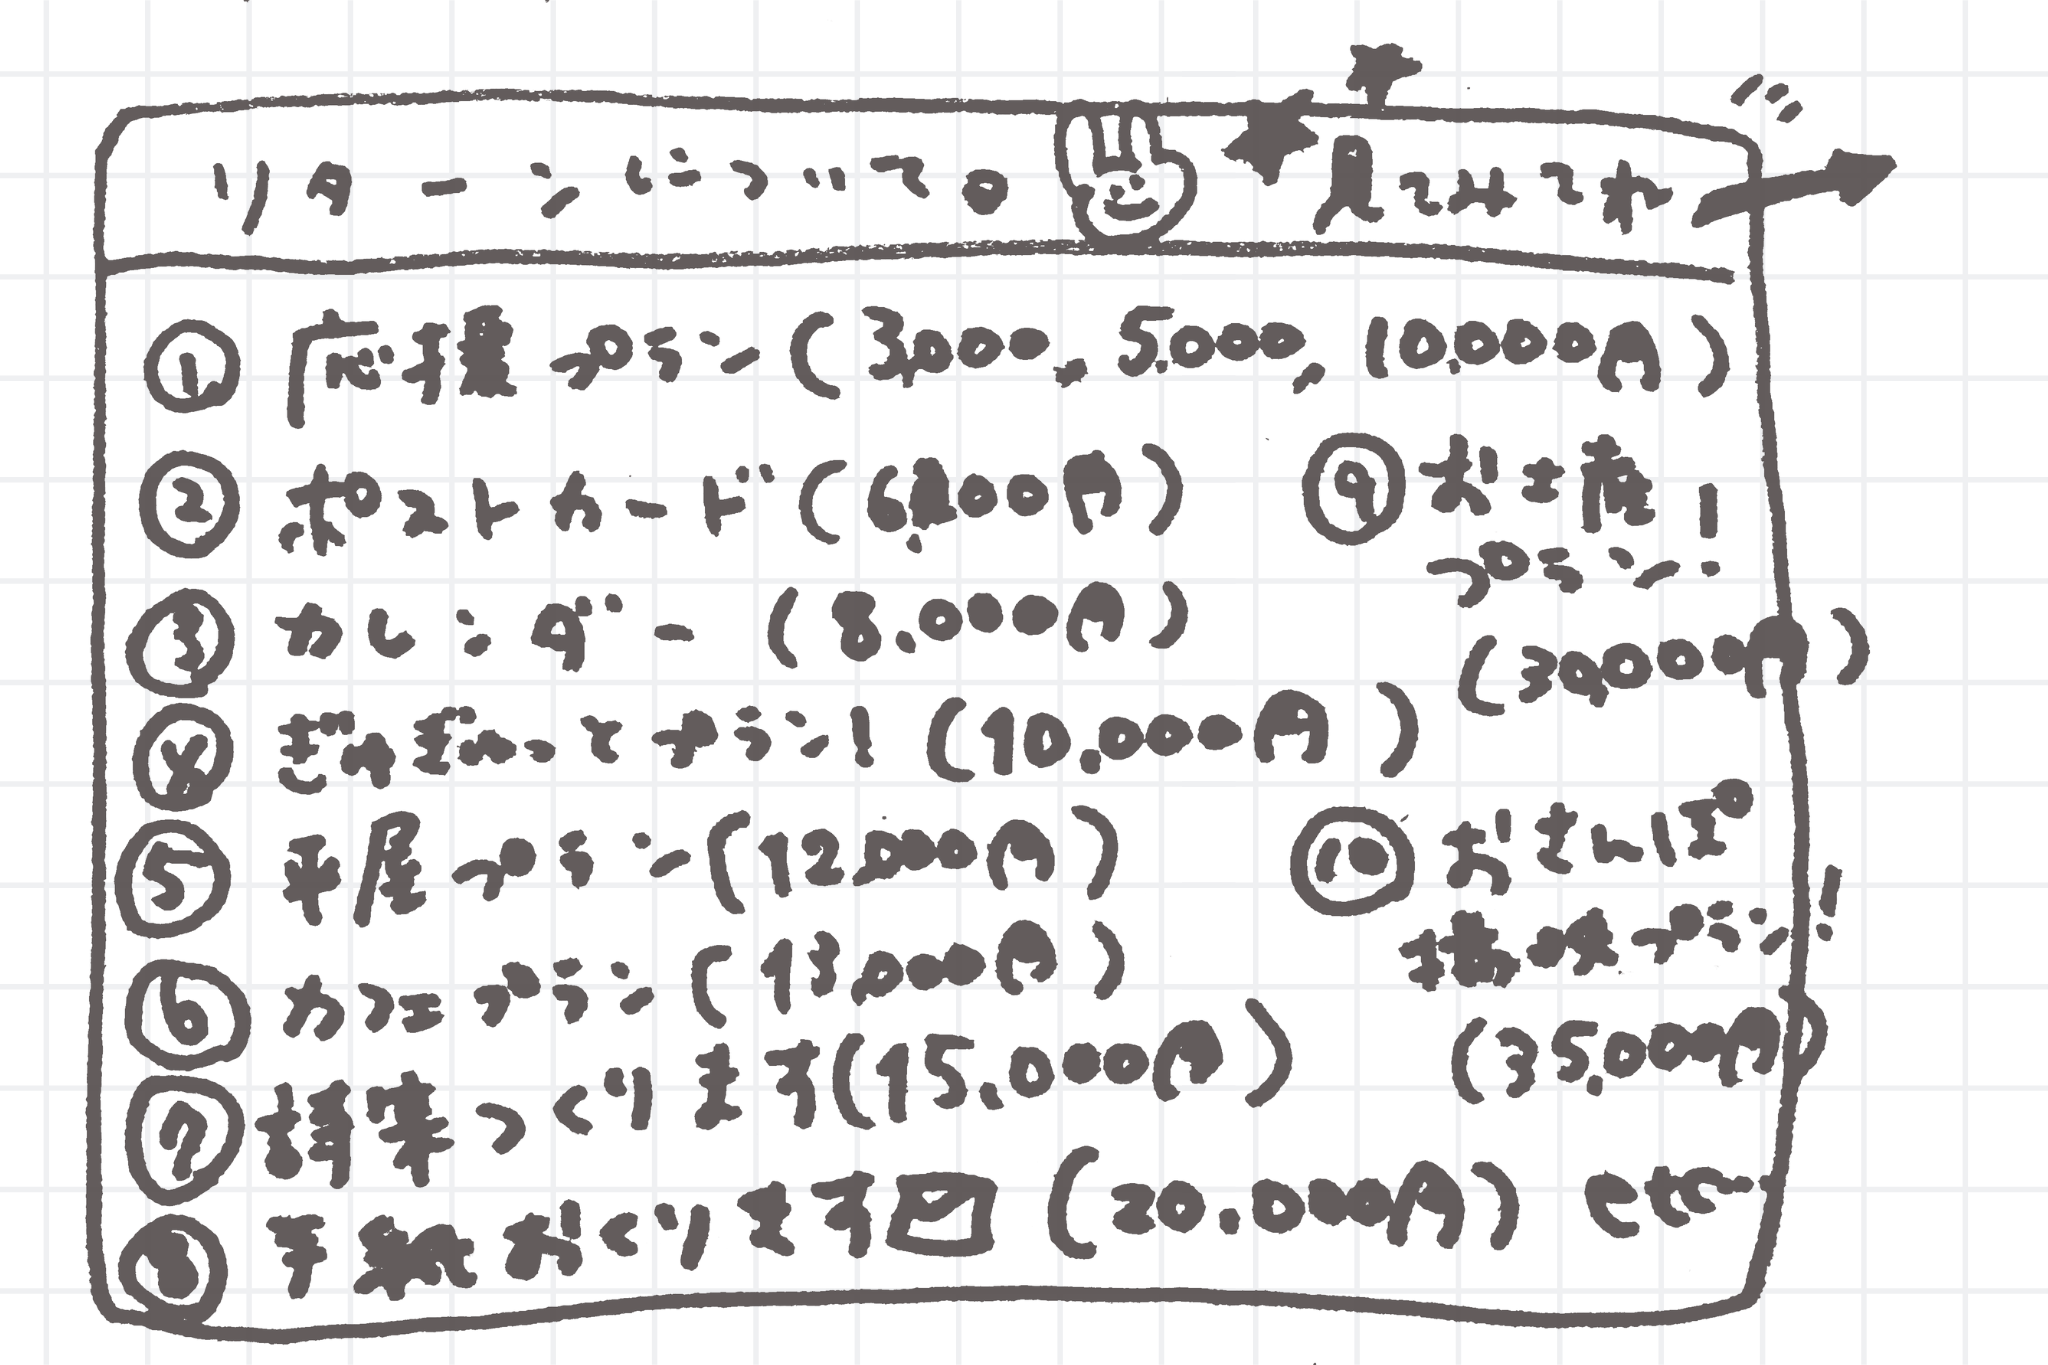 リターンについて。 見てみてね
① 応援プラン(3,000, 5,000, 10,000円)
② ポストカード(6,000円)
③ カレンダー(8,000円)
④ ぎゅぎゅっとプラン!(10,000円)
⑤ 平屋プラン(12,000円)
⑥ カフェプラン(13,000円)
⑦ つくります(15,000円)
⑧ 手紙おくります(20,000円) etc…
⑨ お土産
プラン!
(30,000円)
⑩ おさんぽ
プラン!
(35,000円)